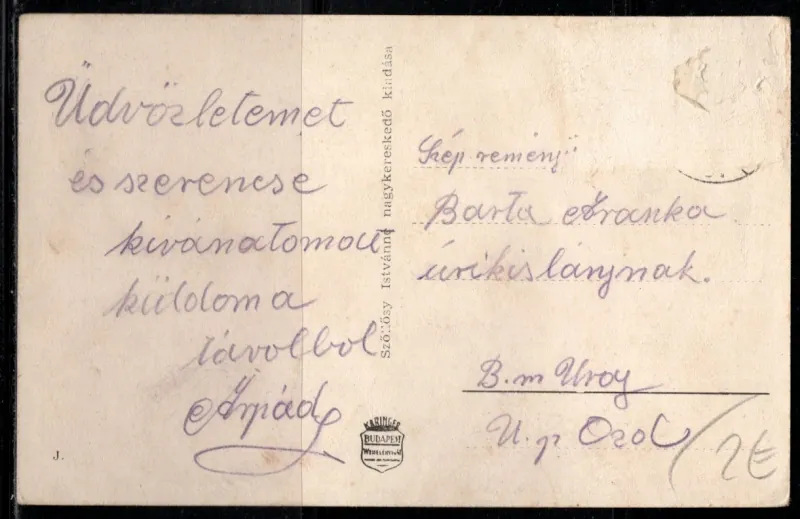 Üdvözletemet
és szerencse
kivánatomat
küldom a
távolbol
Árpád
J.
Szöllősy Istvánné nagykereskedő kiadása
BUDAPEST
Szép reményü
Barta Aranka
úrikislánynak.
B. m Uroy
U. p Ozd
2€